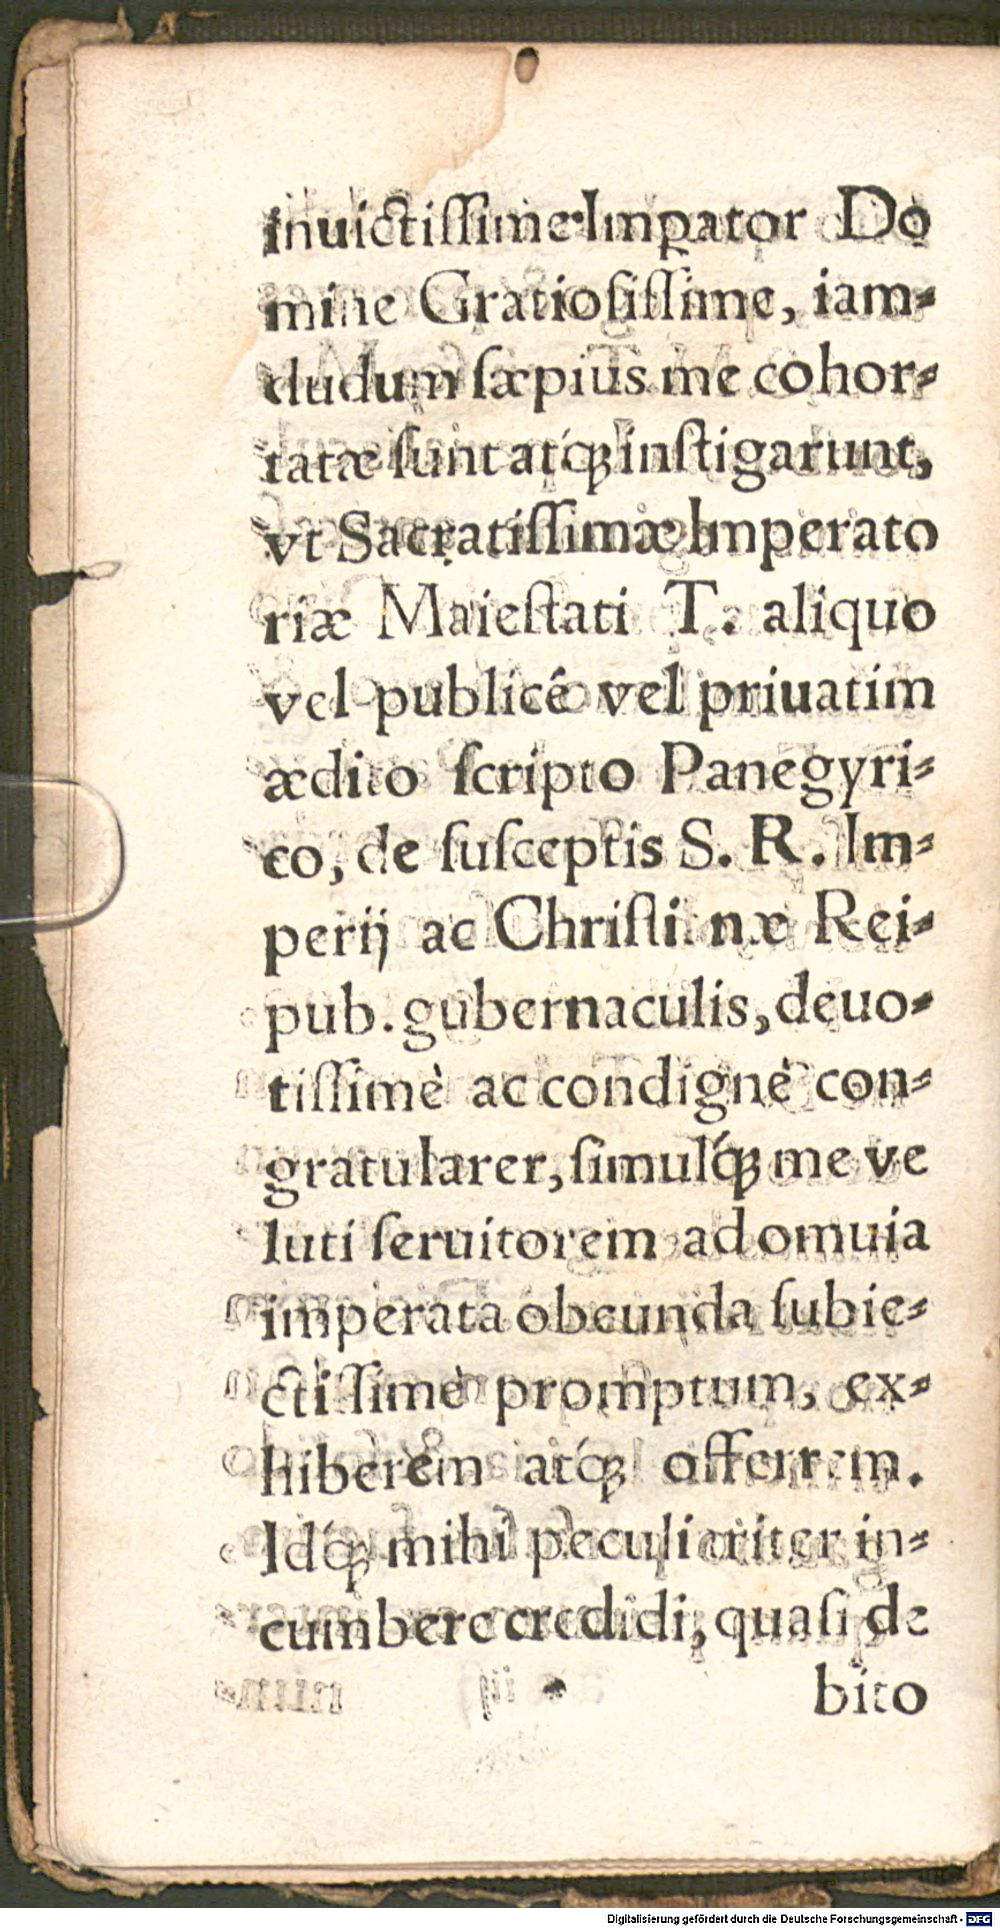 inuictiſſime Imꝑator Do
mine Gratioſiſſime, iam-
dudum ſæpius me cohor-
tatæ ſunt atq́ꝫ inſtigarunt,
vt Sacratiſſimæ Imperato
riæ Maieſtati T. aliquo
vel publicé vel priuatim
ædito ſcripto Panegyri-
co, de ſuſceptis S. R. Im-
perij ac Chriſtinæ Rei-
pub. gubernaculis, deuo-
tiſſimè ac condignè con-
gratularer, ſimulq́ꝫ me ve
luti ſeruitorem ad omuia
imperata obeunda ſubie-
ctiſſimè promptum, ex-
hiberem atq́ꝫ offerrem.
Idq́ꝫ mihi peculiariter in-
cumbere credidi, quaſi de
bito
Digitalisierung gefördert durch die Deutsche Forschungsgemeinschaft - DFG